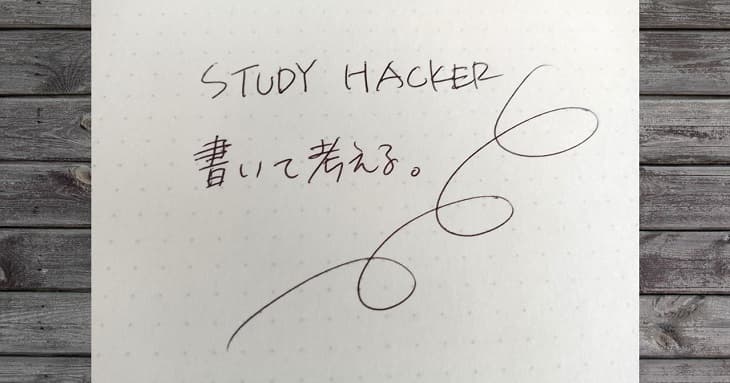 STUDY HACKER
書いて考える。